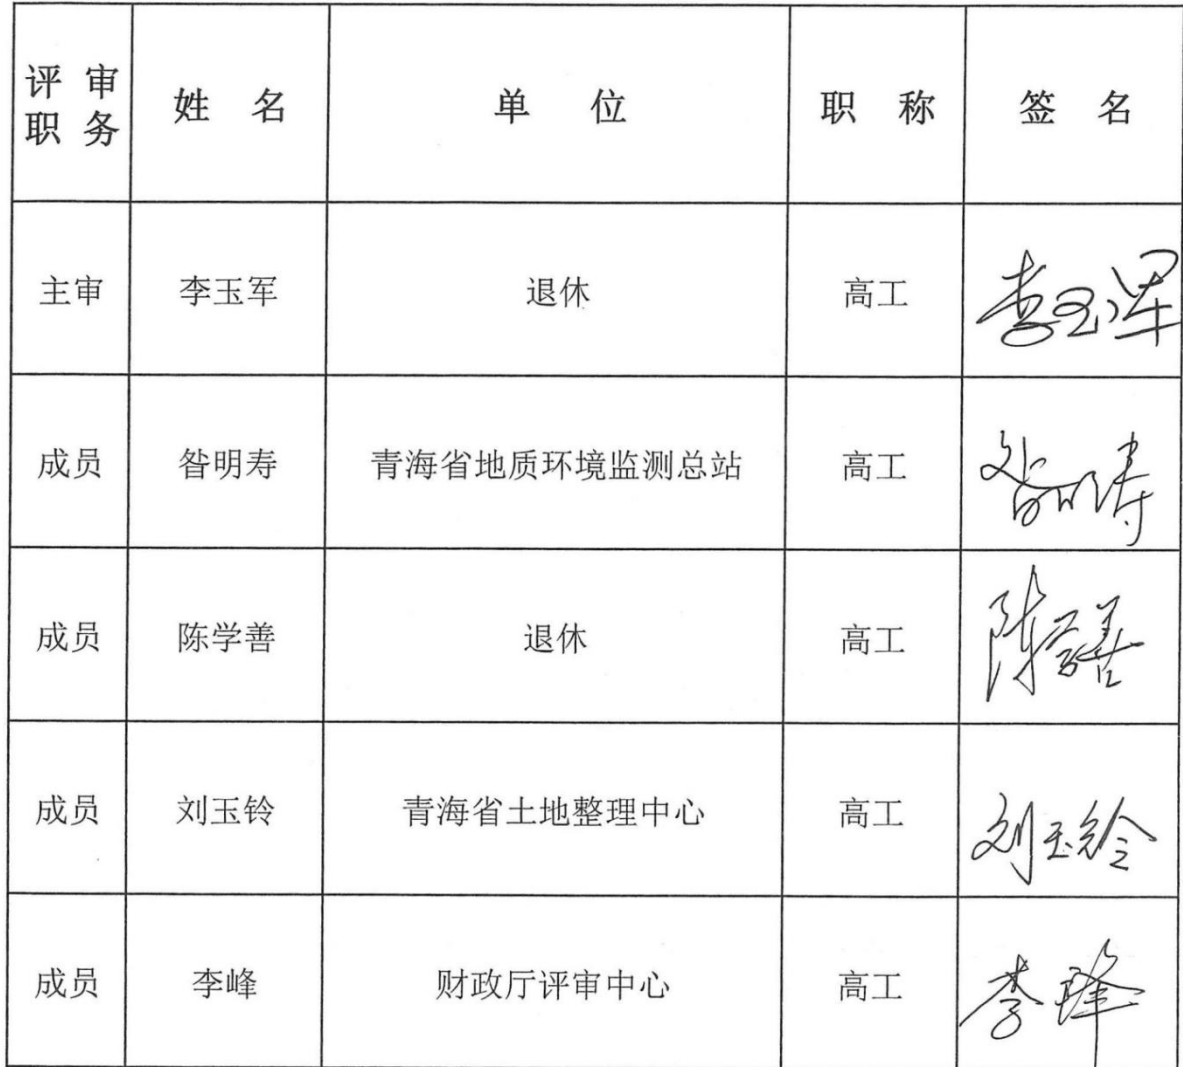 评审职务 姓名 单位 职称 签名
主审 李玉军 退休 高工 李玉军
成员 昝明寿 青海省地质环境监测总站 高工 昝明寿
成员 陈学善 退休 高工 陈学善
成员 刘玉铃 青海省土地整理中心 高工 刘玉铃
成员 李峰 财政厅评审中心 高工 李峰